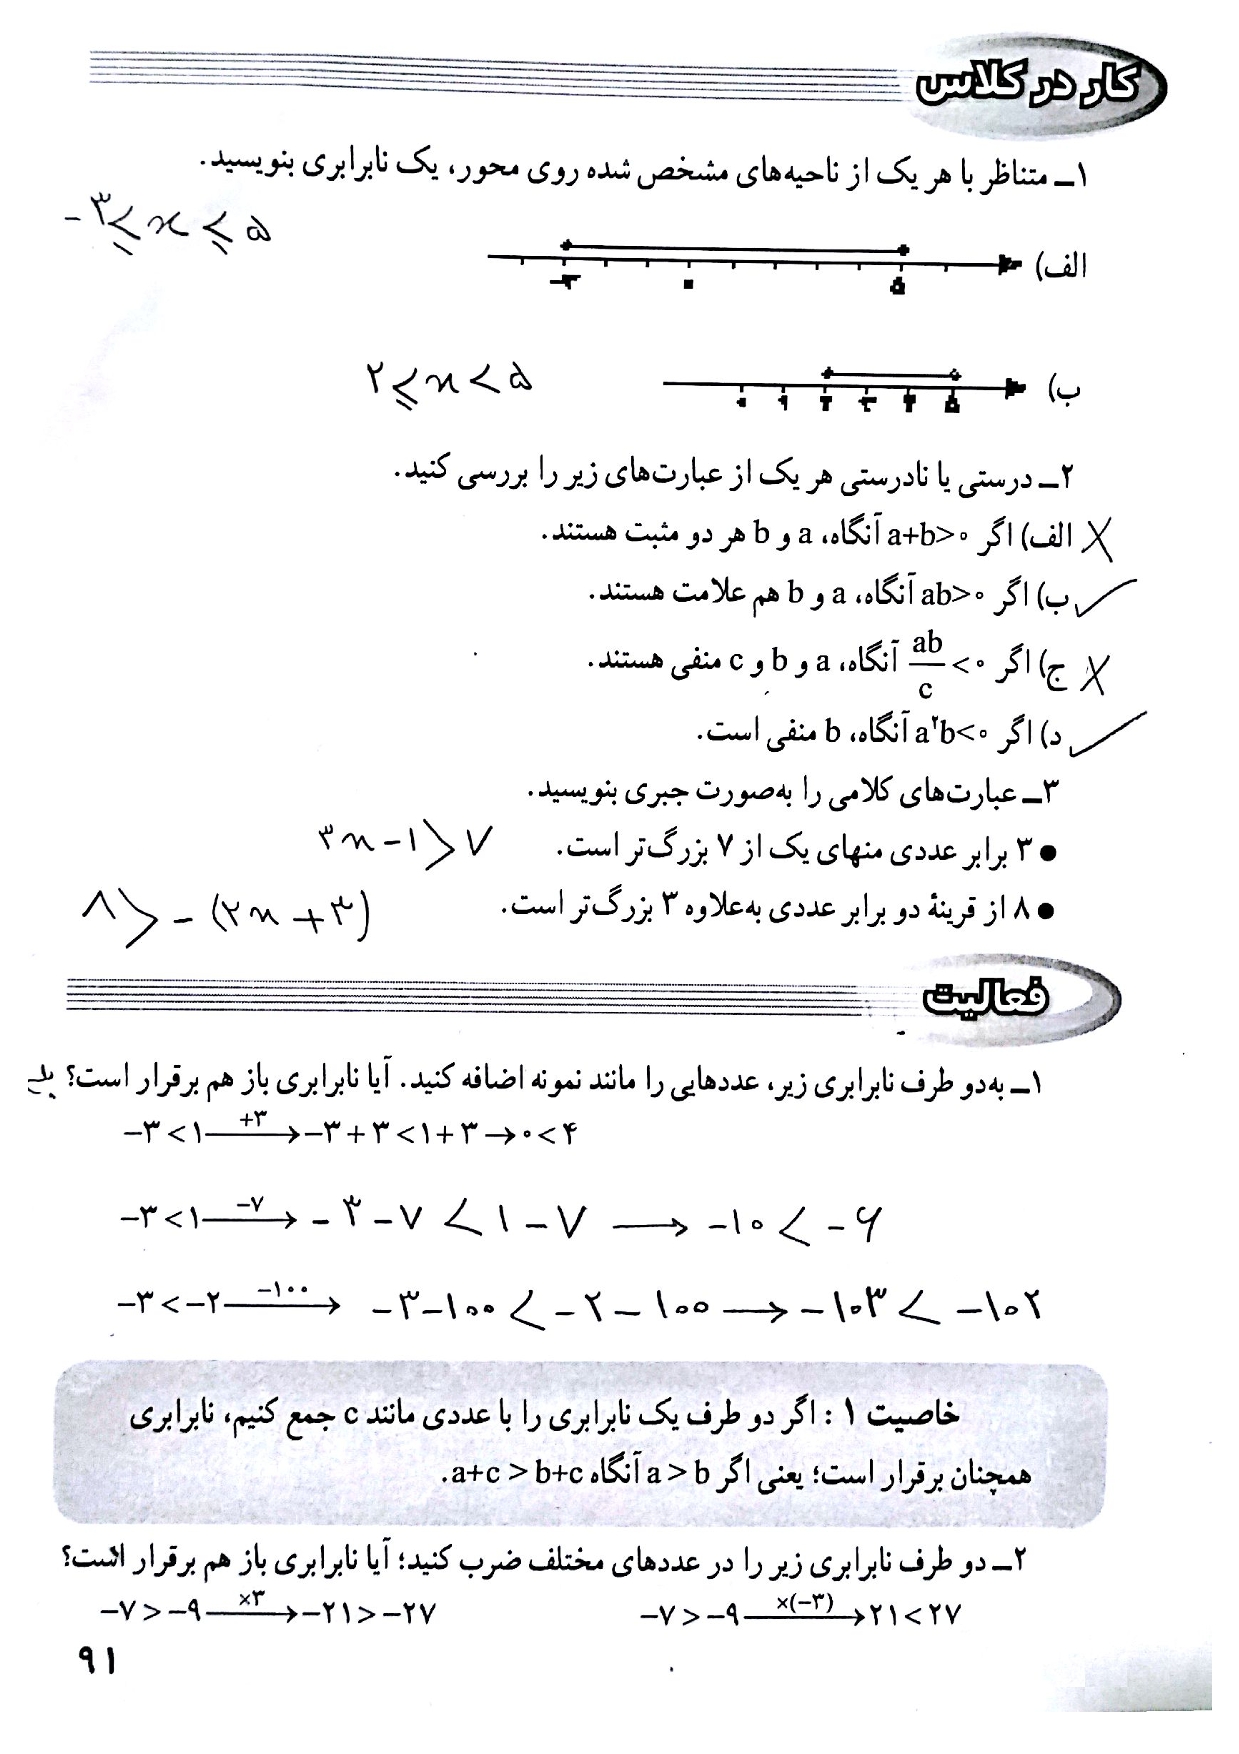 کار در کلاس
۱ــ متناظر با هر یک از ناحیه‌های مشخص شده روی محور، یک نابرابری بنویسید.
-۳ ≤ x ≤ ۵
الف)
-۳ ۰ ۵
ب)
۲ ≤ x < ۵
۰ ۱ ۲ ۳ ۴ ۵
۲ــ درستی یا نادرستی هر یک از عبارت‌های زیر را بررسی کنید.
✗ الف) اگر a+b>۰ آنگاه، a و b هر دو مثبت هستند.
✓ ب) اگر ab>۰ آنگاه، a و b هم علامت هستند.
✗ ج) اگر ab/c <۰ آنگاه، a و b و c منفی هستند.
✓ د) اگر a²b<۰ آنگاه، b منفی است.
۳ــ عبارت‌های کلامی را به‌صورت جبری بنویسید.
● ۳ برابر عددی منهای یک از ۷ بزرگ‌تر است. ۳x-۱>۷
● ۸ از قرینهٔ دو برابر عددی به‌علاوه ۳ بزرگ‌تر است. ۸>-(۲x+۳)
فعالیت
۱ــ به‌دو طرف نابرابری زیر، عددهایی را مانند نمونه اضافه کنید. آیا نابرابری باز هم برقرار است؟ بله
-۳<۱ —+۳→ -۳+۳<۱+۳→۰<۴
-۳<۱ —-۷→ -۳-۷<۱-۷ → -۱۰<-۶
-۳<-۲ —-۱۰۰→ -۳-۱۰۰<-۲-۱۰۰ → -۱۰۳<-۱۰۲
خاصیت ۱ : اگر دو طرف یک نابرابری را با عددی مانند c جمع کنیم، نابرابری
همچنان برقرار است؛ یعنی اگر a>b آنگاه a+c > b+c.
۲ــ دو طرف نابرابری زیر را در عددهای مختلف ضرب کنید؛ آیا نابرابری باز هم برقرار است؟
-۷>-۹ —×۳→ -۲۱>-۲۷ -۷>-۹ —×(-۳)→ ۲۱<۲۷
۹۱